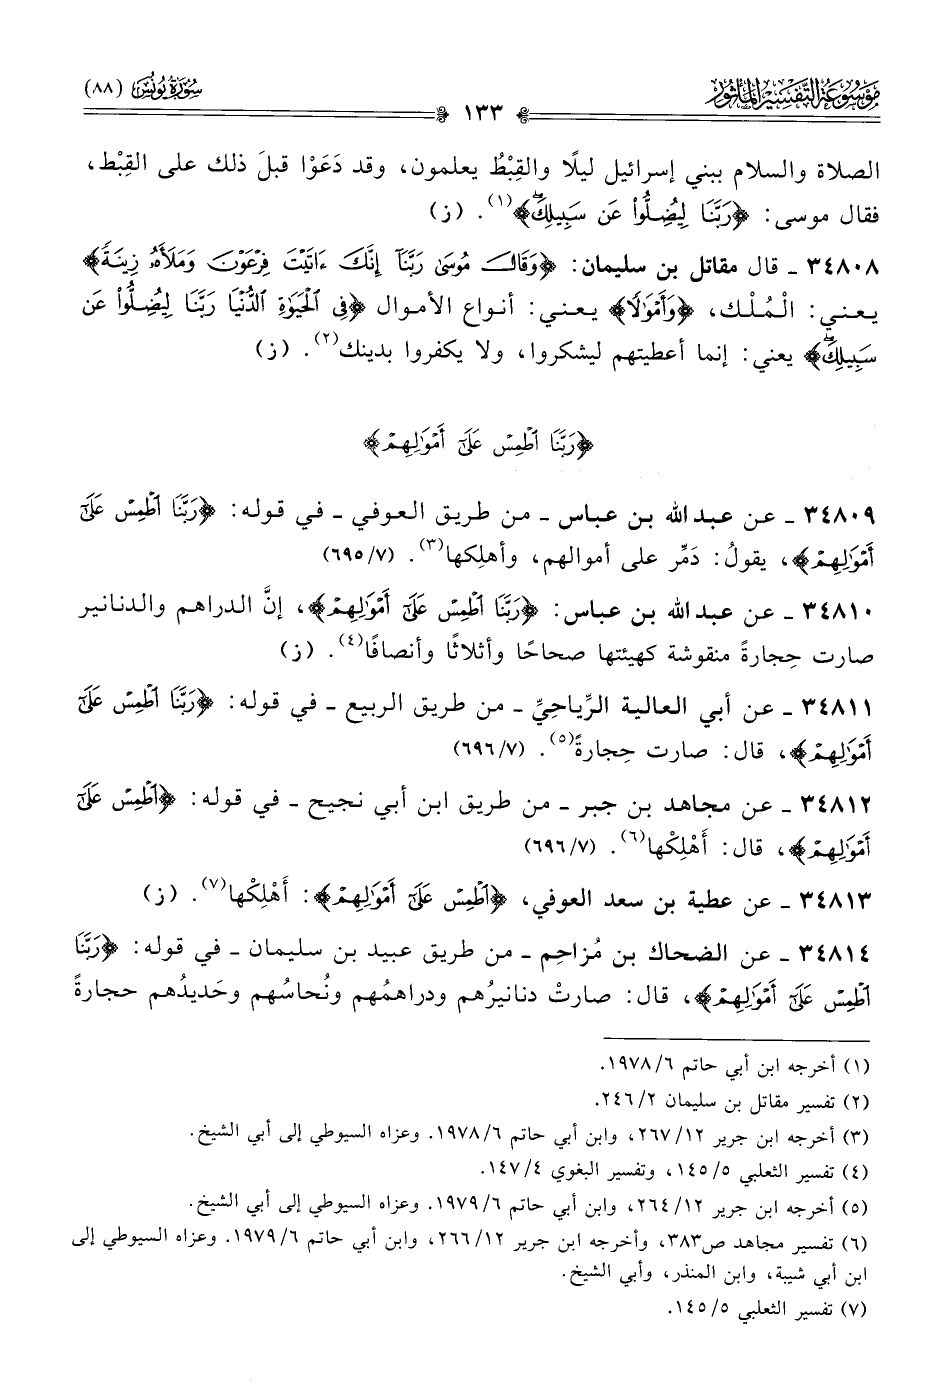 مَوْسُوعَةُ التَّفْسِيرِ المَأْثُورِ
سُورَةُ يُونُسَ (٨٨)
١٣٣
الصلاة والسلام ببني إسرائيل ليلًا والقِبْطُ يعلمون، وقد دَعَوْا قبلَ ذلك على القِبْط،
فقال موسى: ﴿رَبَّنَا لِيُضِلُّوا۟ عَن سَبِيلِكَۖ﴾(١). (ز)
٣٤٨٠٨ ـ قال مقاتل بن سليمان: ﴿وَقَالَ مُوسَىٰ رَبَّنَآ إِنَّكَ ءَاتَيْتَ فِرْعَوْنَ وَمَلَأَهُۥ زِينَةً﴾
يعني: الْمُلْك، ﴿وَأَمْوَٰلًا﴾ يعني: أنواع الأموال ﴿فِى ٱلْحَيَوٰةِ ٱلدُّنْيَا رَبَّنَا لِيُضِلُّوا۟ عَن
سَبِيلِكَۖ﴾ يعني: إنما أعطيتهم ليشكروا، ولا يكفروا بدينك(٢). (ز)
﴿رَبَّنَا ٱطْمِسْ عَلَىٰٓ أَمْوَٰلِهِمْ﴾
٣٤٨٠٩ ـ عن عبد الله بن عباس ـ من طريق العوفي ـ في قوله: ﴿رَبَّنَا ٱطْمِسْ عَلَىٰٓ
أَمْوَٰلِهِمْ﴾، يقولُ: دَمِّر على أموالهم، وأهلِكها(٣). (٧/ ٦٩٥)
٣٤٨١٠ ـ عن عبد الله بن عباس: ﴿رَبَّنَا ٱطْمِسْ عَلَىٰٓ أَمْوَٰلِهِمْ﴾، إنَّ الدراهم والدنانير
صارت حِجارةً منقوشة كهيئتها صحاحًا وأثلاثًا وأنصافًا(٤). (ز)
٣٤٨١١ ـ عن أبي العالية الرِّياحِيِّ ـ من طريق الربيع ـ في قوله: ﴿رَبَّنَا ٱطْمِسْ عَلَىٰٓ
أَمْوَٰلِهِمْ﴾، قال: صارت حِجارةً(٥). (٧/ ٦٩٦)
٣٤٨١٢ ـ عن مجاهد بن جبر ـ من طريق ابن أبي نجيح ـ في قوله: ﴿ٱطْمِسْ عَلَىٰٓ
أَمْوَٰلِهِمْ﴾، قال: أَهْلِكْها(٦). (٧/ ٦٩٦)
٣٤٨١٣ ـ عن عطية بن سعد العوفي، ﴿ٱطْمِسْ عَلَىٰٓ أَمْوَٰلِهِمْ﴾: أَهْلِكْها(٧). (ز)
٣٤٨١٤ ـ عن الضحاك بن مُزاحِم ـ من طريق عبيد بن سليمان ـ في قوله: ﴿رَبَّنَا
ٱطْمِسْ عَلَىٰٓ أَمْوَٰلِهِمْ﴾، قال: صارتْ دنانيرُهم ودراهمُهم ونُحاسُهم وحَديدُهم حجارةً
(١) أخرجه ابن أبي حاتم ٦/ ١٩٧٨.
(٢) تفسير مقاتل بن سليمان ٢/ ٢٤٦.
(٣) أخرجه ابن جرير ١٢/ ٢٦٧، وابن أبي حاتم ٦/ ١٩٧٨. وعزاه السيوطي إلى أبي الشيخ.
(٤) تفسير الثعلبي ٥/ ١٤٥، وتفسير البغوي ٤/ ١٤٧.
(٥) أخرجه ابن جرير ١٢/ ٢٦٤، وابن أبي حاتم ٦/ ١٩٧٩. وعزاه السيوطي إلى أبي الشيخ.
(٦) تفسير مجاهد ص٣٨٣، وأخرجه ابن جرير ١٢/ ٢٦٦، وابن أبي حاتم ٦/ ١٩٧٩. وعزاه السيوطي إلى
ابن أبي شيبة، وابن المنذر، وأبي الشيخ.
(٧) تفسير الثعلبي ٥/ ١٤٥.